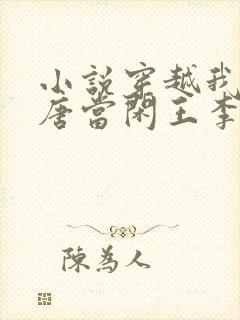 小說穿越我
唐當閑王李
陳為人